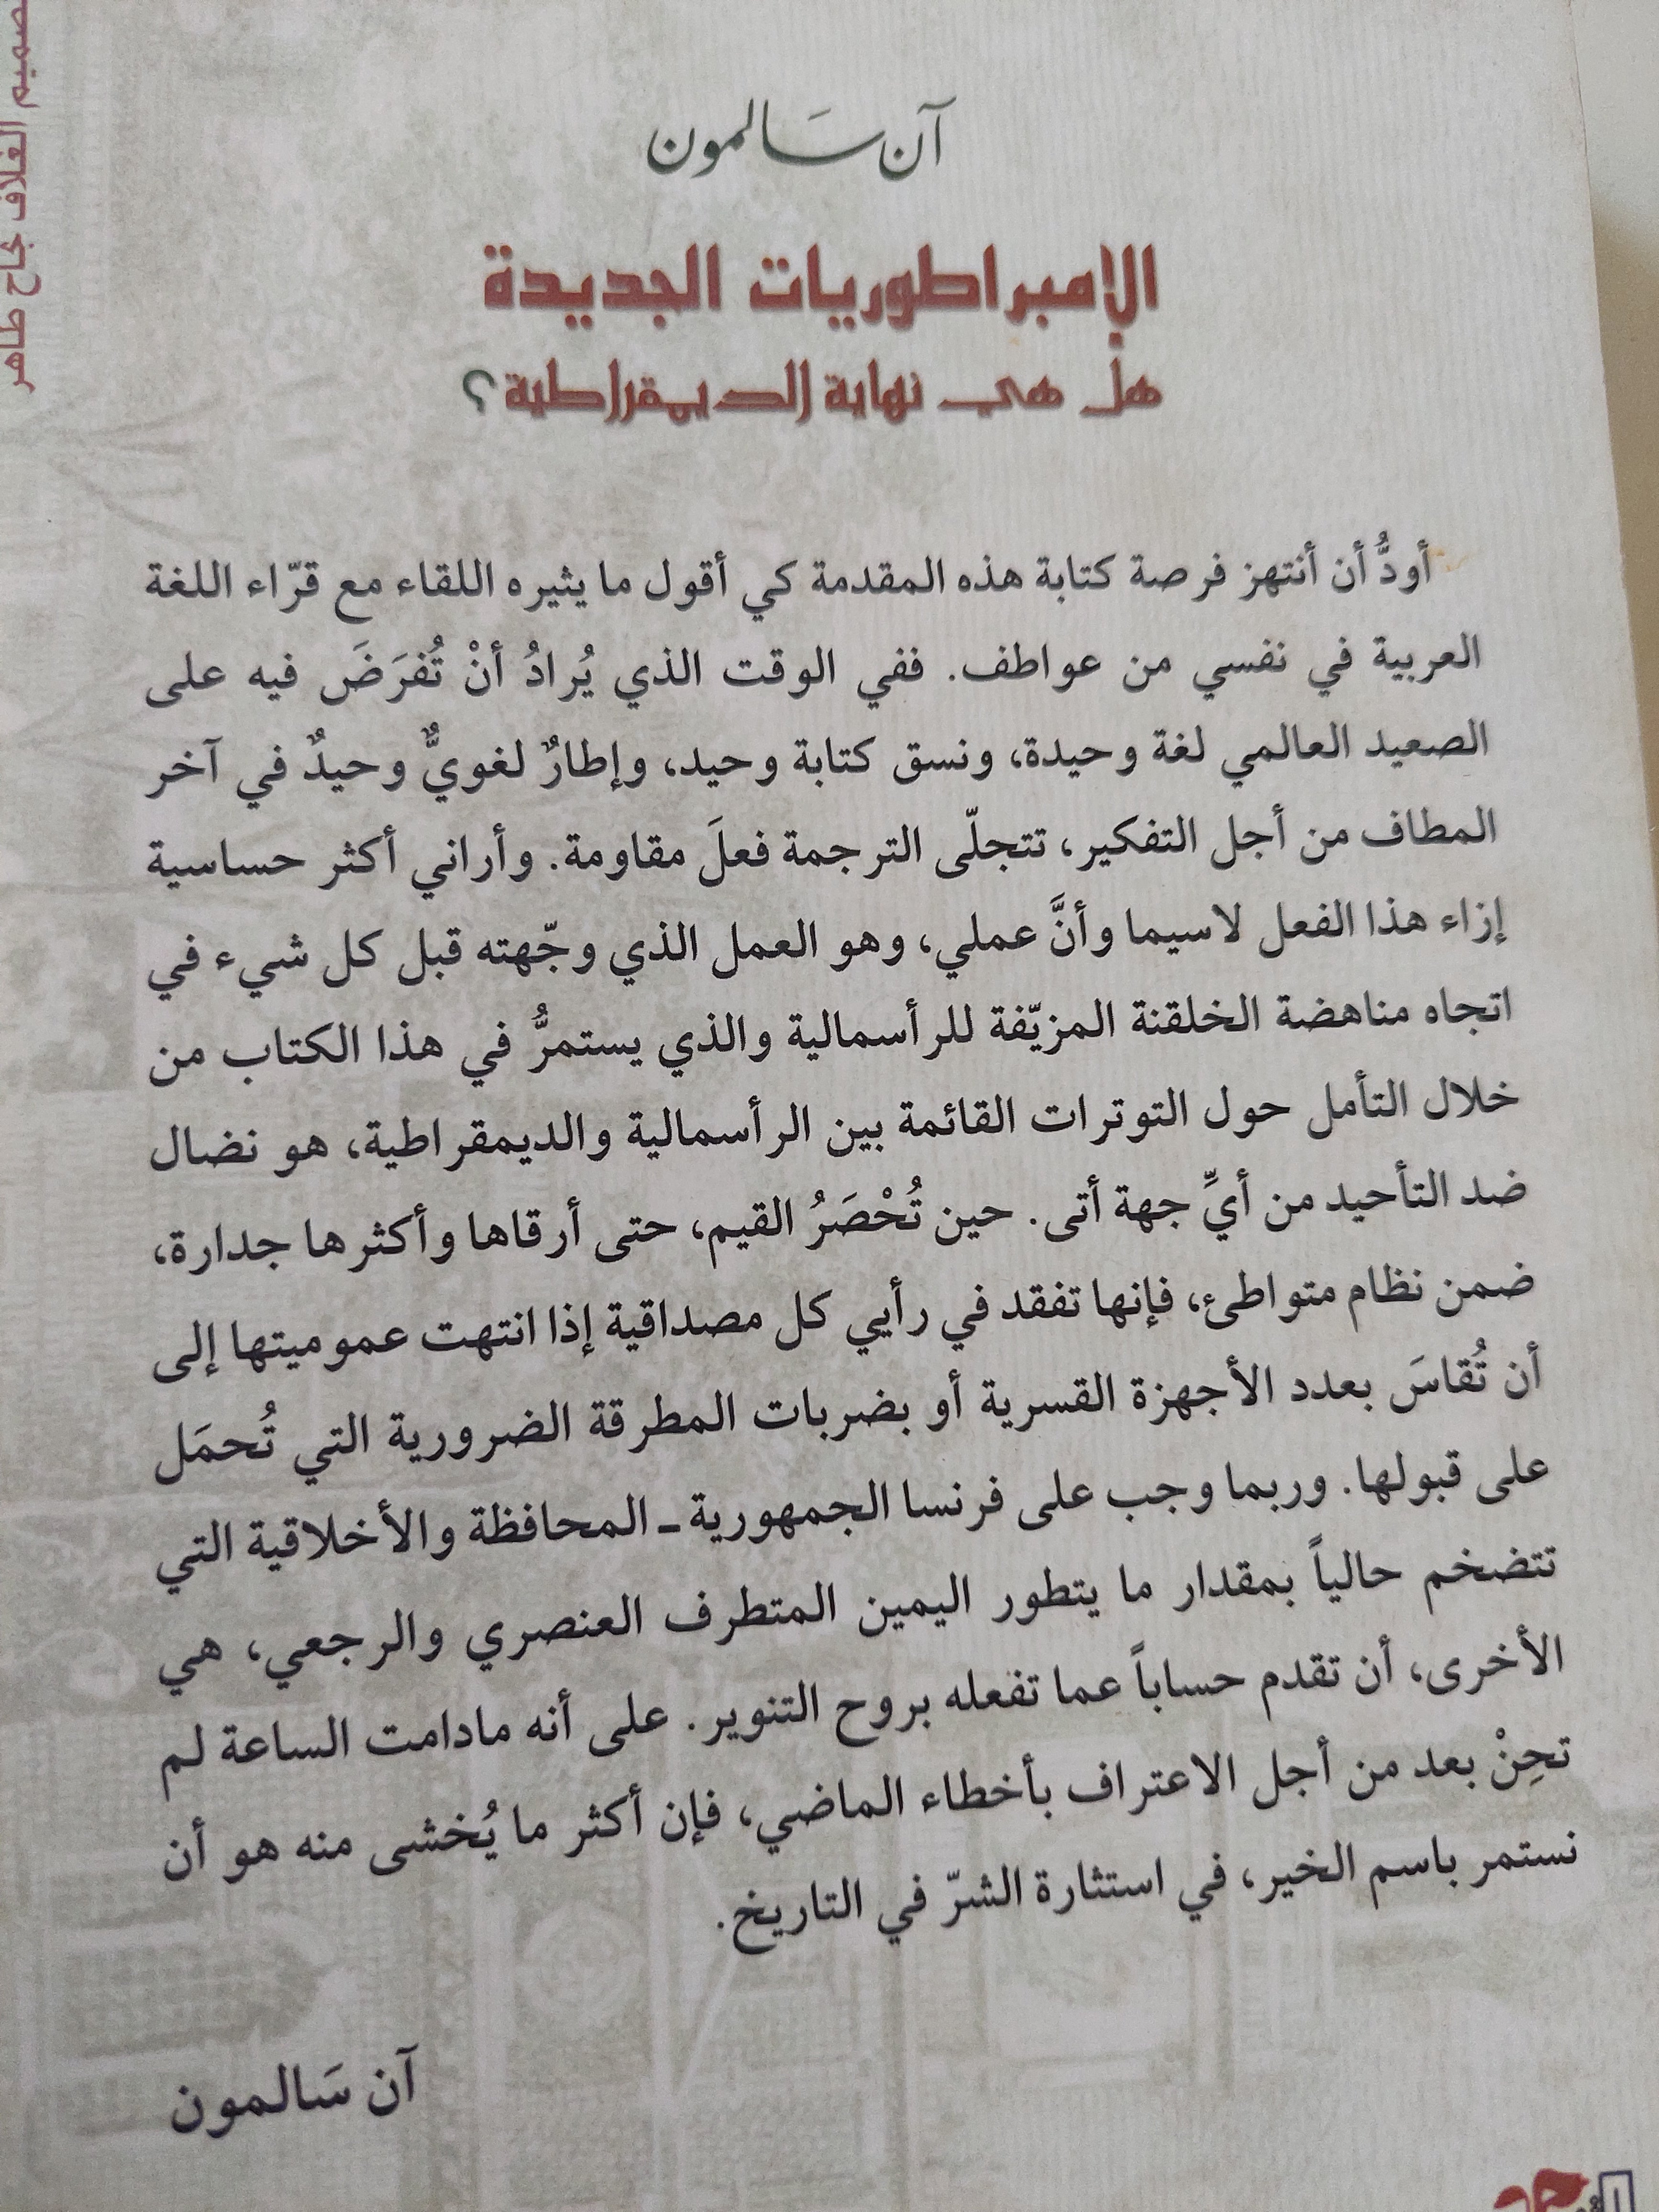 آن سَالمون
الإمبراطوريات الجديدة
هل هي نهاية الديمقراطية؟
أودُّ أن أنتهز فرصة كتابة هذه المقدمة كي أقول ما يثيره اللقاء مع قرّاء اللغة
العربية في نفسي من عواطف. ففي الوقت الذي يُرادُ أنْ تُفرَضَ فيه على
الصعيد العالمي لغة وحيدة، ونسق كتابة وحيد، وإطارٌ لغويٌّ وحيدٌ في آخر
المطاف من أجل التفكير، تتجلّى الترجمة فعلَ مقاومة. وأراني أكثر حساسية
إزاء هذا الفعل لاسيما وأنَّ عملي، وهو العمل الذي وجّهته قبل كل شيء في
اتجاه مناهضة الخلقنة المزيّفة للرأسمالية والذي يستمرُّ في هذا الكتاب من
خلال التأمل حول التوترات القائمة بين الرأسمالية والديمقراطية، هو نضال
ضد التأحيد من أيِّ جهة أتى. حين تُحْصَرُ القيم، حتى أرقاها وأكثرها جدارة،
ضمن نظام متواطئ، فإنها تفقد في رأيي كل مصداقية إذا انتهت عموميتها إلى
أن تُقاسَ بعدد الأجهزة القسرية أو بضربات المطرقة الضرورية التي تُحمَل
على قبولها. وربما وجب على فرنسا الجمهورية ـ المحافظة والأخلاقية التي
تتضخم حالياً بمقدار ما يتطور اليمين المتطرف العنصري والرجعي، هي
الأخرى، أن تقدم حساباً عما تفعله بروح التنوير. على أنه مادامت الساعة لم
تحِنْ بعد من أجل الاعتراف بأخطاء الماضي، فإن أكثر ما يُخشى منه هو أن
نستمر باسم الخير، في استثارة الشرّ في التاريخ.
آن سَالمون
تصميم الغلاف نجاح طاهر